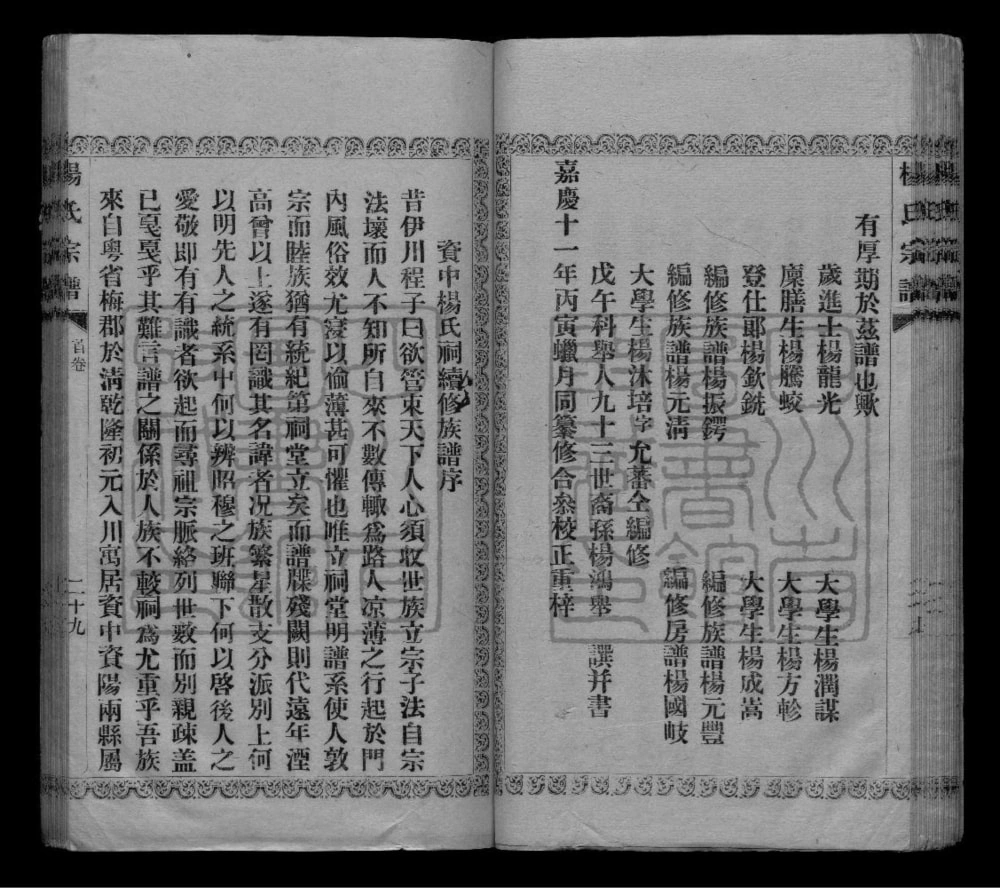 楊氏宗譜
有厚期於茲譜也歟
歲進士楊龍光 大學生楊潤謀
廩膳生楊騰蛟 大學生楊方軫
登仕郎楊欽銑 大學生楊成嵩
編修族譜楊振鍔 編修族譜楊元豐
編修族譜楊元清 編修房譜楊國岐
大學生楊沐培字允蕃仝編修
戊午科舉人九十三世裔孫楊鴻舉 譔并書
嘉慶十一年丙寅蠟月同纂修合叅校正重梓
資中楊氏祠續修族譜序
昔伊川程子曰欲管束天下人心須収世族立宗子法自宗
法壞而人不知所自來不數傳輙爲路人凉薄之行起於門
內風俗效尤寖以偷薄甚可懼也唯立祠堂明譜系使人敦
宗而睦族猶有統紀第祠堂立矣而譜牒殘闕則代遠年湮
高曾以上遂有罔識其名諱者况族繁星散支分派別上何
以明先人之統系中何以辨昭穆之班聯下何以啓後人之
愛敬即有有識者欲起而尋祖宗脈絡列世數而別親疎盖
已戛戛乎其難言譜之關係於人族不較祠爲尤重乎吾族
來自粵省梅郡於淸乾隆初元入川寓居資中資陽兩縣屬
楊氏宗譜
首卷
二十九